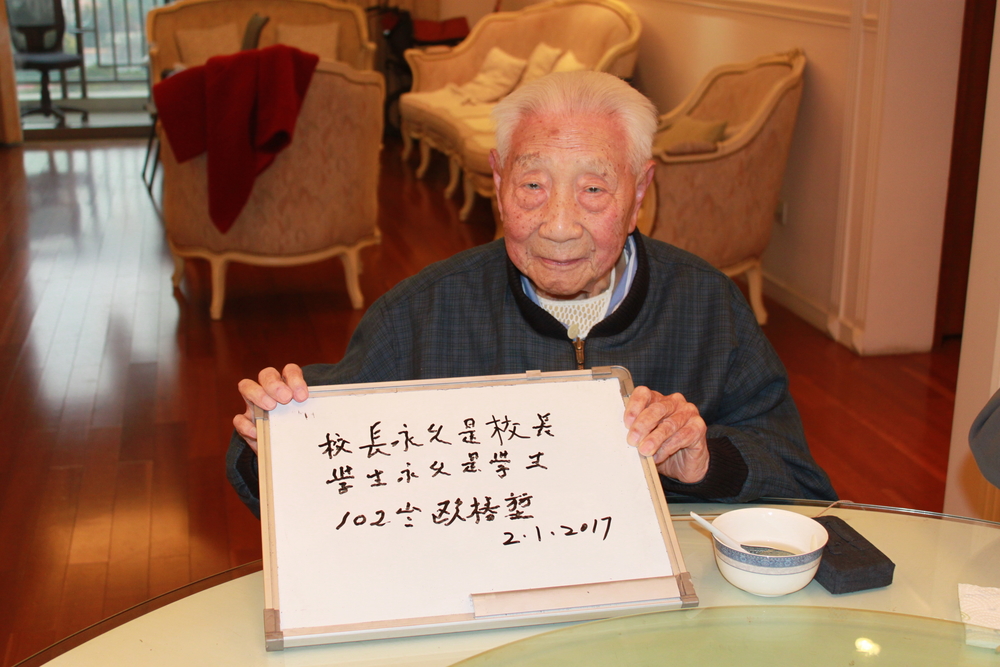 校長永久是校長
學生永久是學生
102岁欧椿
2.1.2017